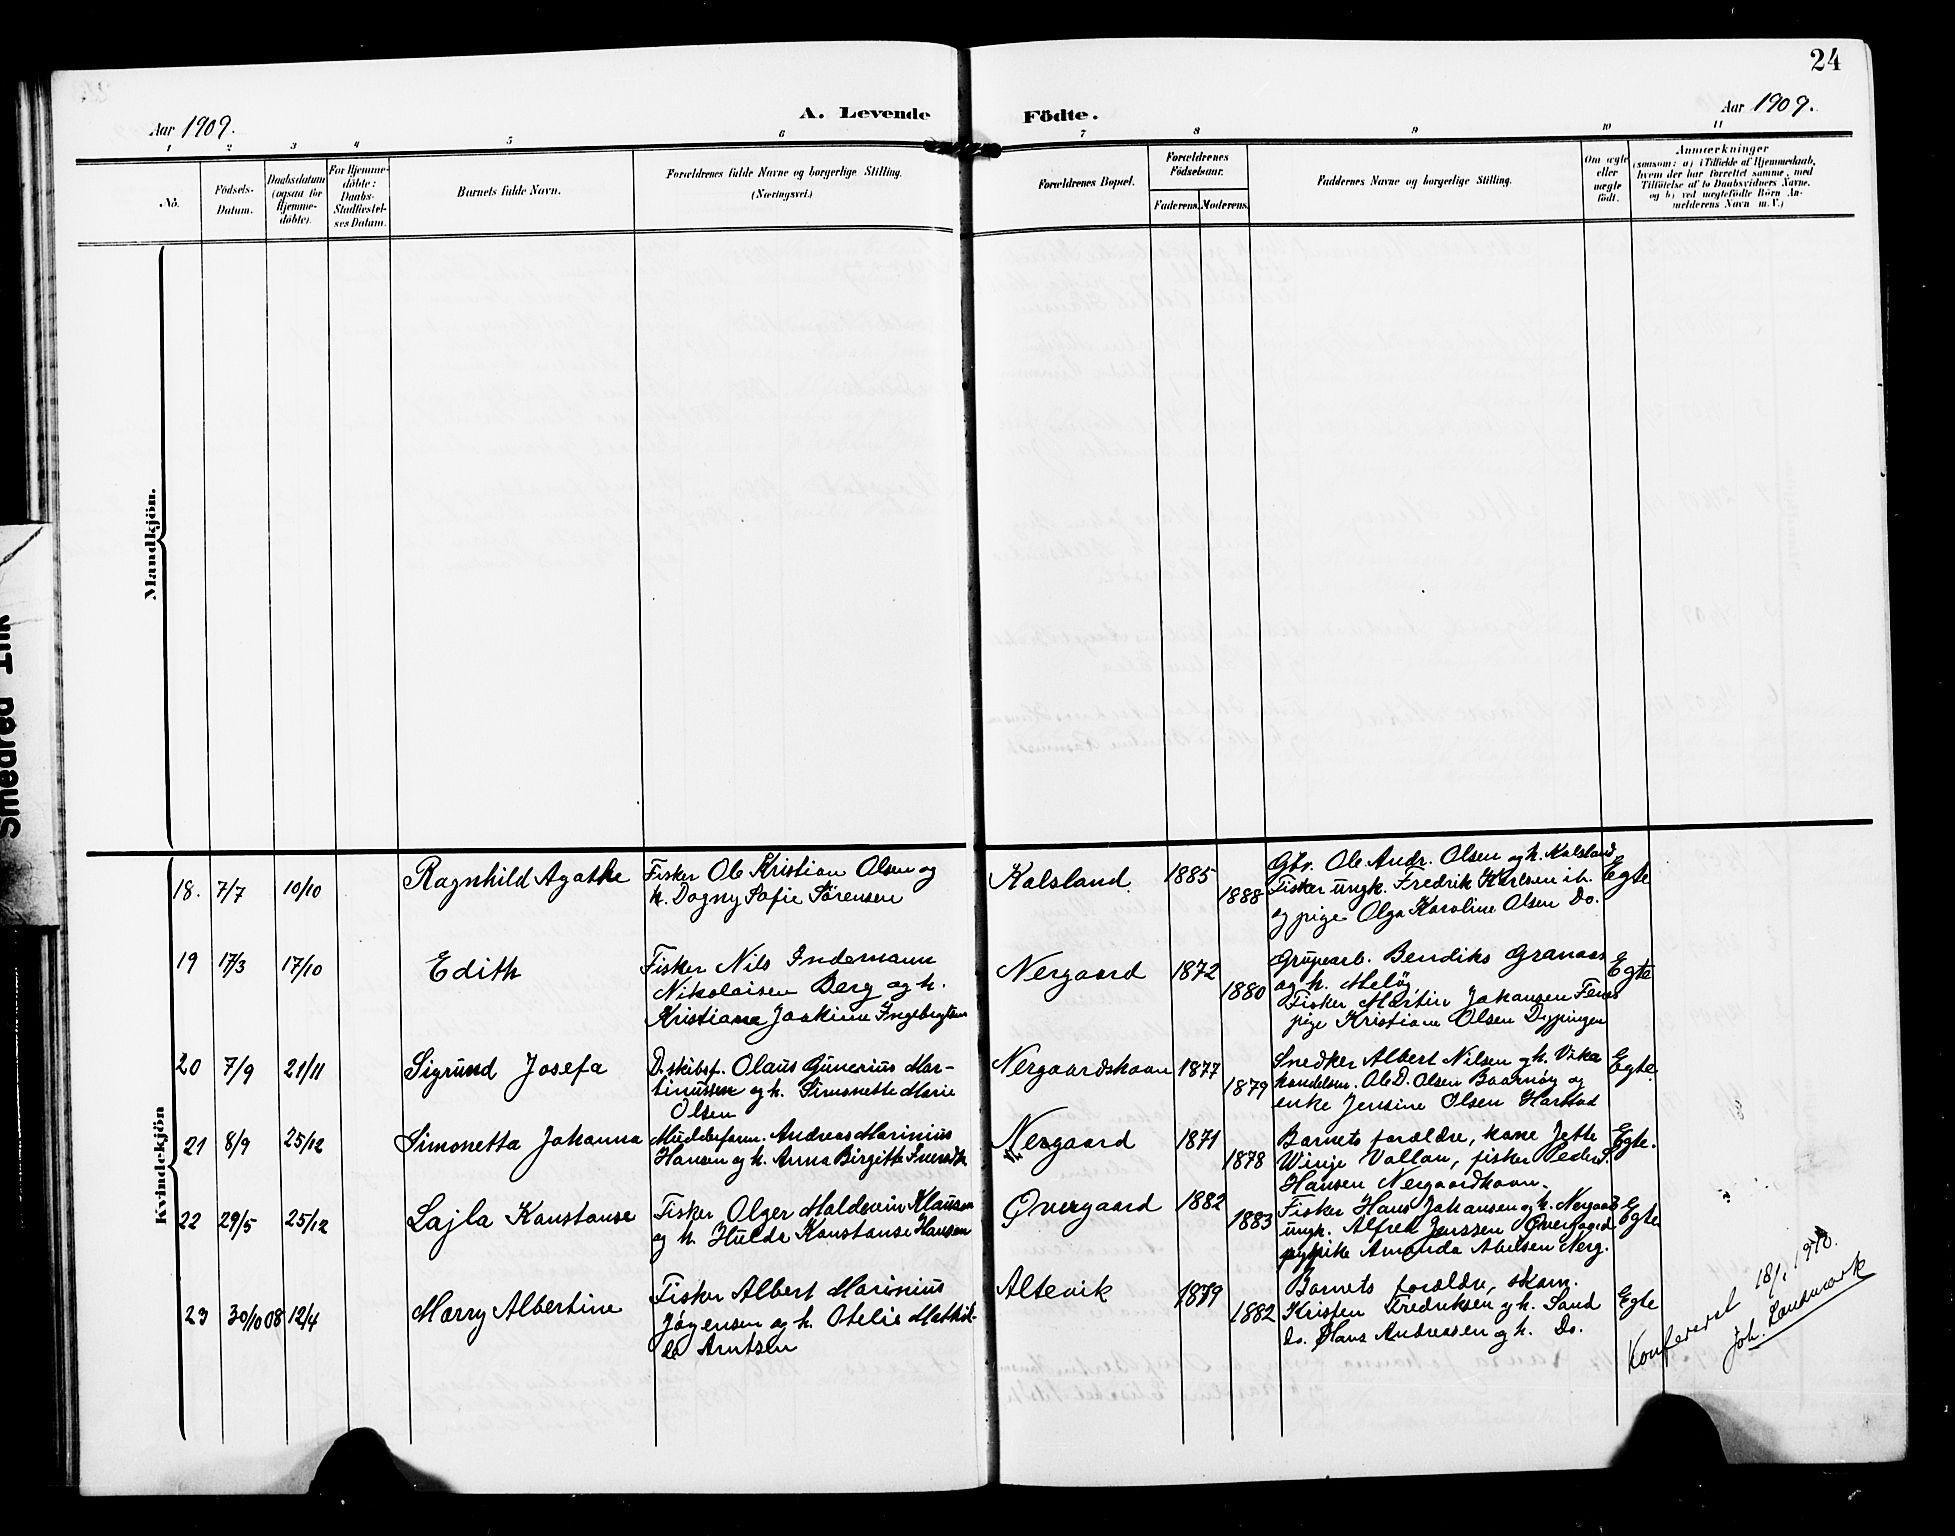 24
Aar 1909.
A. Levende Födte.
Aar 1909.
1 2 3 4 5 6 7 8 9 10 11
No.
Födsels-
Datum.
Daabsdatum
(ogsaa for
Hjemme-
döbte).
For Hjemme-
döbte:
Daabs-
Stadfæstel-
ses Datum.
Barnets fulde Navn.
Forældrenes fulde Navne og borgerlige Stilling.
(Næringsvei.)
Forældrenes Bopæl.
Forældrenes
Födselsaar.
Faderens.
Moderens.
Faddernes Navne og borgerlige Stilling.
Om ægte
eller
uægte
födt.
Anmærkninger
(saasom: a) i Tilfælde af Hjemmedaab,
hvem der har forrettet samme, med
Tilföielse af to Daabsvidners Navne.
og b) ved uægtefödte Börn An-
melderens Navn m. V.)
Mandkjön.
Kvindekjön
18. 7/7 10/10 Ragnhild Agathe
Fisker Ole Kristian Olsen og
h. Dagny Sofie Sörensen
Kalsland 1885 1888
Gbr. Ole Andr. Olsen og h. Kalsland
Fisker ungk. Fredrik Karlsen ib.
og pige Olga Karoline Olsen Do.
Egte
19 17/3 17/10 Edith
Fisker Nils Indemann
Nikolaisen Berg og h.
Kristiane Joakime Ingebrigtsen
Nergaard 1872 1880
Grupearb. Bendiks Granaas
og h. Melöy
Fisker Martin Johansen Fenes
pige Kristiane Olsen Dyppingen
Egte
20 7/9 21/11 Sigrund Josefa
D.skibsf. Olaus Gunerius Mar-
tinussen og h. Simonette Marie
Olsen
Nergaardshavn 1877 1879
Snedker Albert Nilsen og h. Vika
handelsm. Ole D. Olsen Baarnöy og
enke Jensine Olsen Harstad
Egte.
21 8/9 25/12 Simonetta Johanna
Mudderform. Andreas Marinius
Hansen og h. Anna Birgitte
Nergaard 1871 1878
Barnets forældre, kone Jette
Winje Vollan, fisker Peder
Hansen Nergaardhavn.
Egte.
22 29/5 25/12 Lajla Konstanse
Fisker Olger Maldevin Klausen
og h. Hulda Konstanse Hansen
Øvergaard 1882 1883
Fisker Hans Johansen og h. Nergaard
ungk. Alfred Jenssen Øvergaard
pike Amanda Abelsen Nerg.
Egte
23 30/10 08 12/4 Marry Albertine
Fisker Albert Marinius
Jörgensen og h. Otelie Mathil-
de Arntsen
Altevik 1879 1882
Barnets forældre, skom.
Kristen Fredriksen og h. Sand
Do. Hans Andreasen og h. Do.
Egte
Konfereret 18/1 1910.
Joh. Landmark
Smedrad Ink